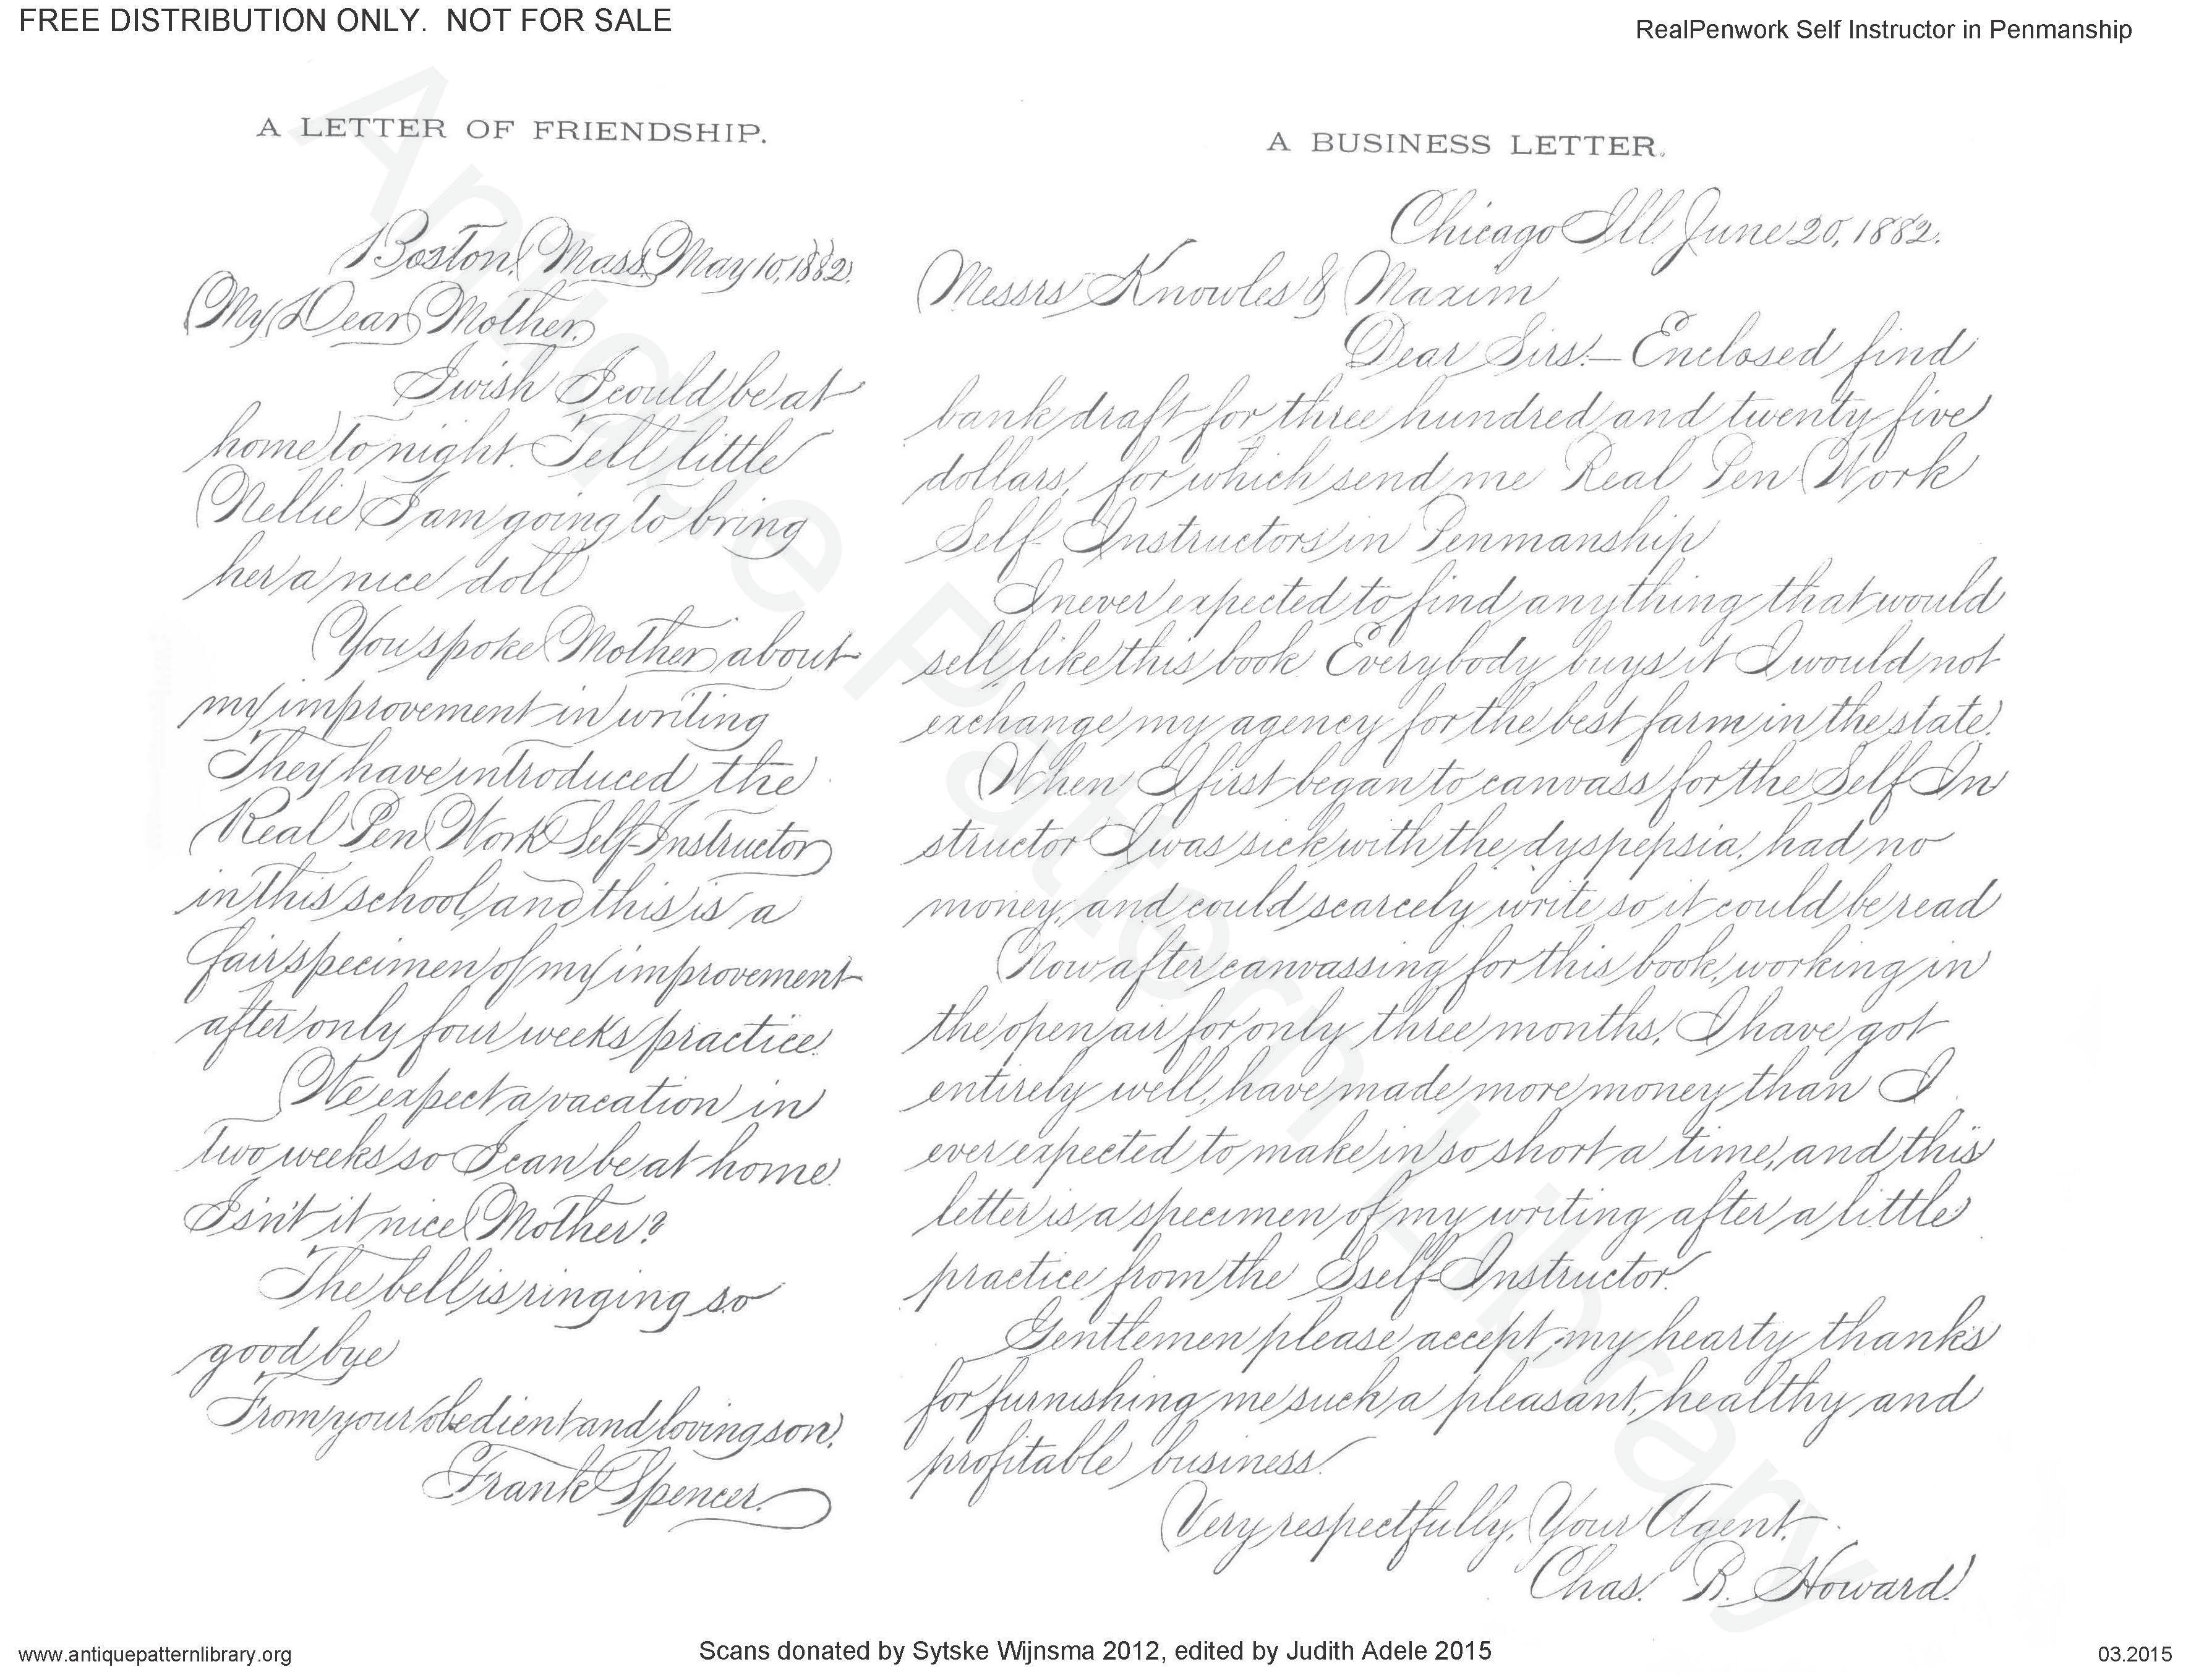 FREE DISTRIBUTION ONLY.  NOT FOR SALE
RealPenwork Self Instructor in Penmanship
A LETTER OF FRIENDSHIP.
Boston, Mass. May 10, 1882.
My Dear Mother.
I wish I could be at
home to night. Tell little
Nellie I am going to bring
her a nice doll
You spoke Mother about
my improvement in writing
They have introduced the
Real Pen Work Self-Instructor
in this school, and this is a
fair specimen of my improvement
after only four weeks practice.
We expect a vacation in
two weeks so I can be at home.
Isn't it nice Mother?
The bell is ringing so
good bye
From your obedient and loving son,
Frank Spencer.
A BUSINESS LETTER.
Chicago Ill. June 20, 1882.
Messrs Knowles & Maxim
Dear Sirs:— Enclosed find
bank draft for three hundred and twenty five
dollars, for which send me Real Pen Work
Self-Instructors in Penmanship
I never expected to find anything that would
sell like this book. Everybody buys it I would not
exchange my agency for the best farm in the state.
When I first began to canvass for the Self In
structor I was sick with the dyspepsia, had no
money, and could scarcely write so it could be read
Now after canvassing for this book, working in
the open air for only three months, I have got
entirely well, have made more money than I
ever expected to make in so short a time, and this
letter is a specimen of my writing after a little
practice from the Sself-Instructor.
Gentlemen please accept my hearty thanks
for furnishing me such a pleasant, healthy and
profitable business.
Very respectfully, Your Agent.
Chas. R. Howard.
Antique Pattern Library
www.antiquepatternlibrary.org
Scans donated by Sytske Wijnsma 2012, edited by Judith Adele 2015
03.2015